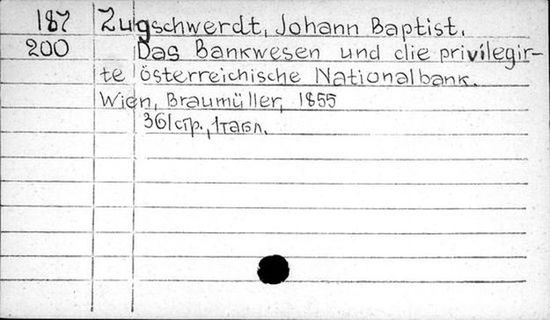 187 Zugschwerdt, Johann Baptist.
200 Das Bankwesen und die privilegir-
te österreichische Nationalbank.
Wien, Braumüller, 1855
361стр., 1табл.